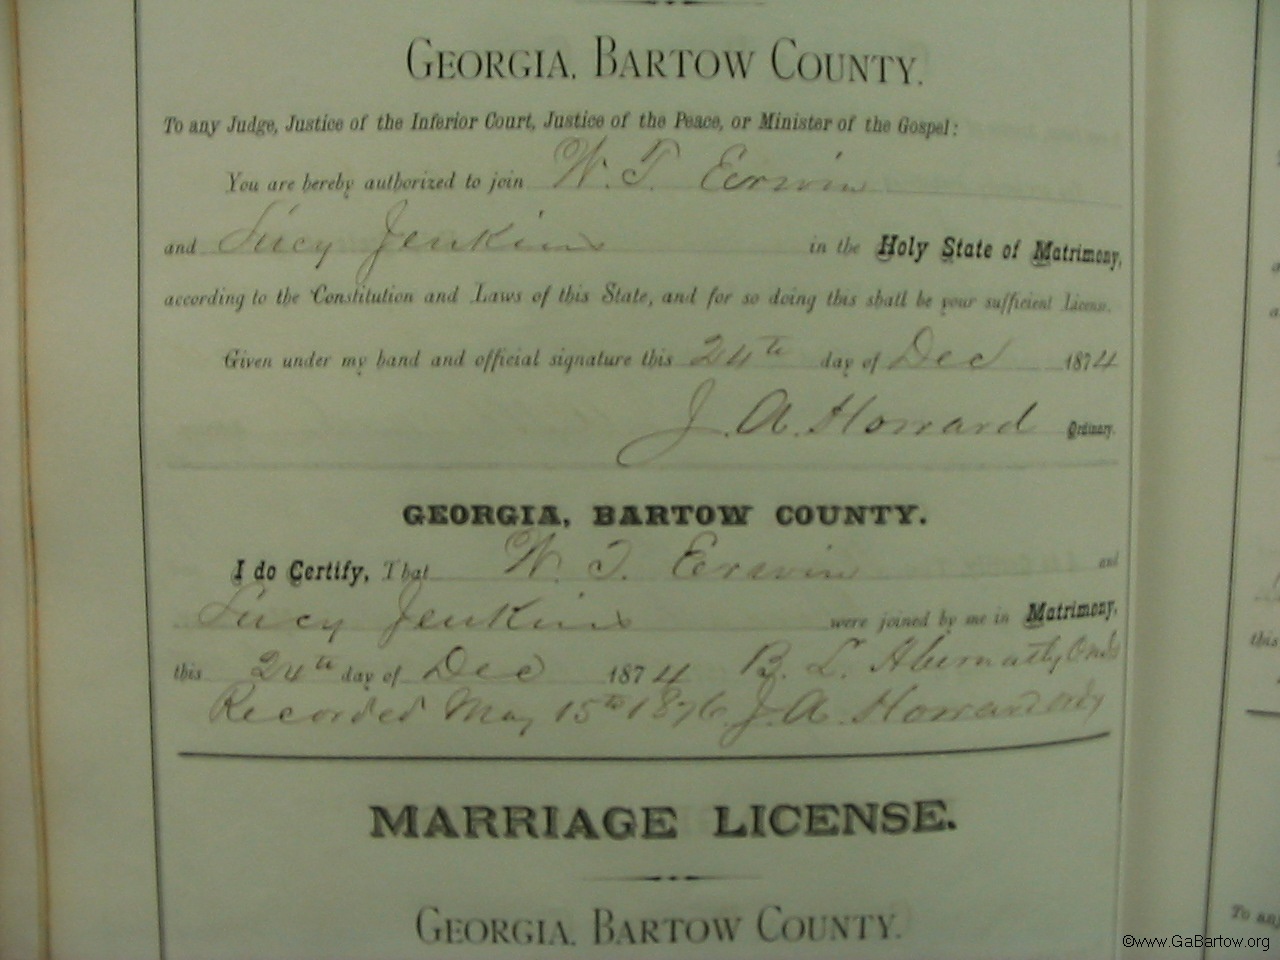 GEORGIA, BARTOW COUNTY.
To any Judge, Justice of the Inferior Court, Justice of the Peace, or Minister of the Gospel:
You are hereby authorized to join W. T. Erwin
and Lucy Jenkins in the Holy State of Matrimony,
according to the Constitution and Laws of this State, and for so doing this shall be your sufficient License.
Given under my hand and official signature this 24th day of Dec 1874
J. A. Howard Ordinary.
GEORGIA, BARTOW COUNTY.
I do Certify, That W. T. Erwin and
Lucy Jenkins were joined by me in Matrimony,
this 24th day of Dec 1874 B. L. Abernathy
Recorded May 15th 1876 J. A. Howard Ordy
MARRIAGE LICENSE.
GEORGIA, BARTOW COUNTY.
this
To any
©www.GaBartow.org